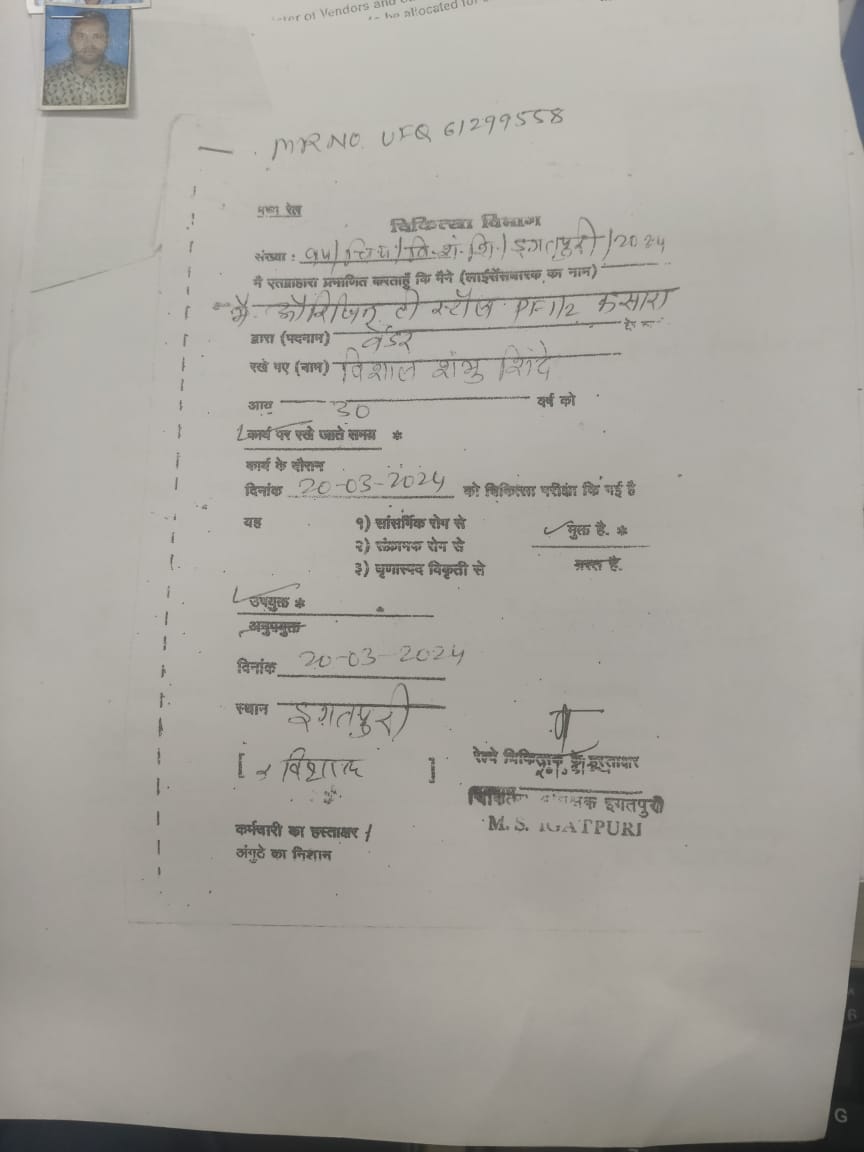 of Vendors and
to be allocated for
MR NO. UFQ 61299558
मध्य रेल
चिकित्सा विभाग
संख्या : १५/चिप्र/वि.शं.शिं./इगतपुरी/2024
मै एतद्वारा प्रमाणित करताहुँ कि मैने (लाईसेंसधारक का नाम)
मे. ओरिजिन टी स्टॉल PF-1/2 कसारा
द्वारा (पदनाम) वेंडर
रखे गए (नाम) विशाल शंभु शिंदे
आयु 30 वर्ष को
कार्य पर रखे जाते समय *
कार्य के दौरान
दिनांक 20-03-2024 को चिकित्सा परीक्षा कि गई है
यह १) सांसर्गिक रोग से मुक्त है. *
२) संक्रामक रोग से
३) घृणास्पद विकृती से ग्रस्त है.
उपयुक्त *
अनुपयुक्त
दिनांक 20-03-2024
स्थान इगतपुरी
[ x विशाल ]
रेल्वे चिकित्सक के हस्ताक्षर
इगतपुरी
M. S. IGATPURI
कर्मचारी का हस्ताक्षर /
अंगुठे का निशान
G